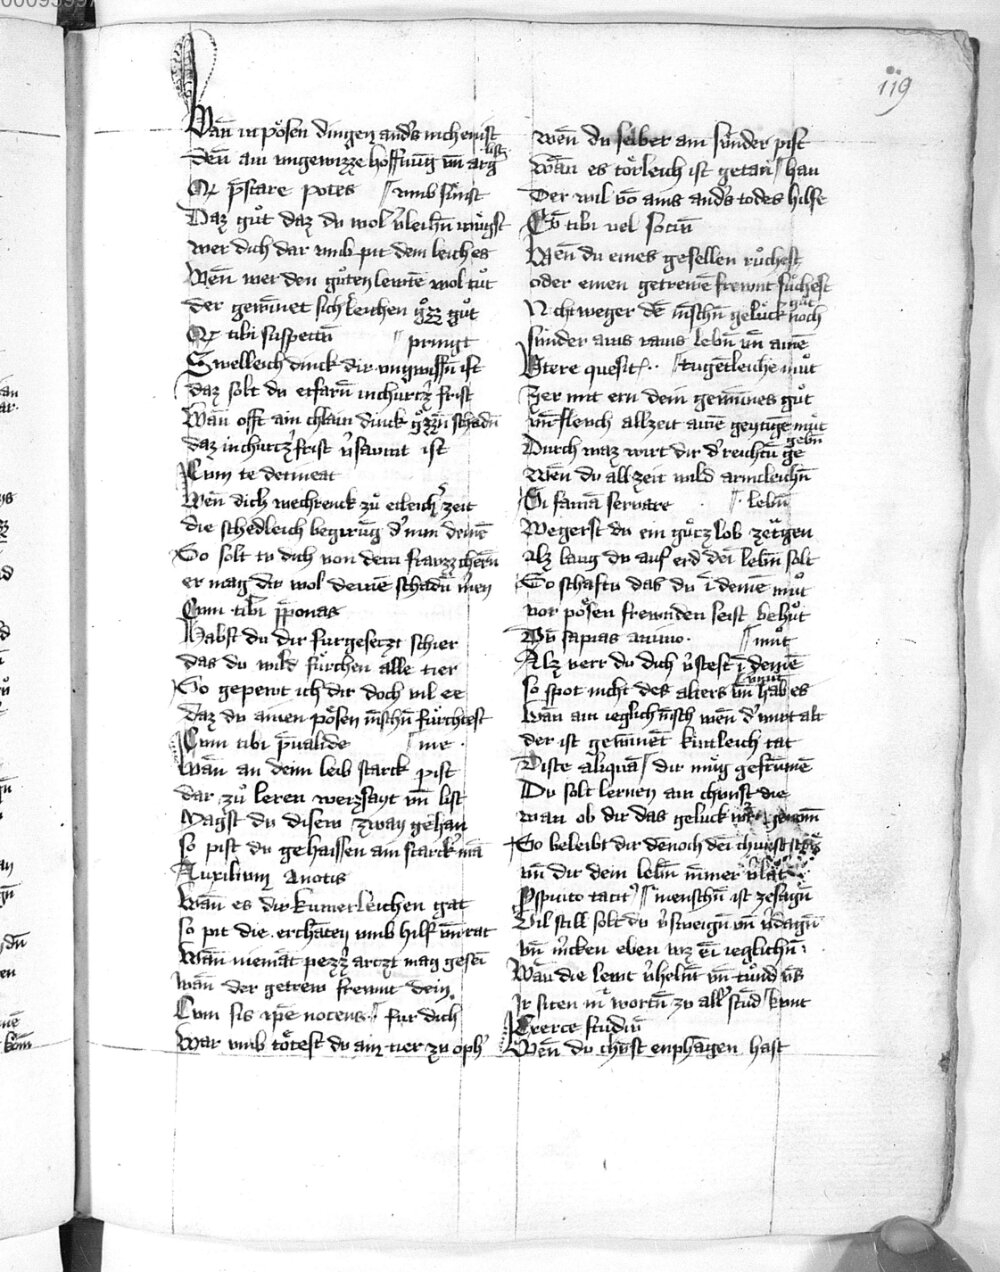 119
Wan̄ in pösen dingen and's nicht enist
Den̄ ain ungewizze hoffnu̅g vn̄ arg list
Or p̄stare potes // vmb sünst
Daz gůt daz du wol v'leihn̄ mügst
wer dich dar vmb pit dem leich es
Wen̄ wer den gůten lewtē wol tůt
der gewin̄et sichleichen gꝛ̊zz gůt
tibi suspectū // pringt
Swelleich dinck dir vngwissn̄ ist
daz solt du erfarn̄ in churtz' frist
Wan̄ offt ain chlain dinck gꝛ̊zzn̄ schadn̄
daz in churtz' frist v'sawmt ist
Cum te detineat
Wen̄ dich weibrenck zů etleich' zeit
die schedleich begiru̅g d' min deinē
So solt tu dich von dem frazz chern̄
er mag dir wol deinē schadn̄ mern
Cum tibi p̄ponas
Habst du dir furgesetzt schier
das du wild fürchen alle tier
So gepewt ich dir doch vil ee
Daz du ainen pösen m̄schn̄ fürchtest
Cum tibi p̄ualide // me
Wan̄ an deim leib starck pist
dar zů leren werzsayt vn̄ list
Magst du disew zway gehan
so pist du gehaissen ain starck' mā
Auxilium a notis
Wan̄ es dir kumerleichen gat
so pit die erchāten vmb hilf vn̄ rat
Wan̄ niemāt pezz' arczt mag gesei
wan̄ der getrew frewnt dein
Cum sis ip̄e nocens // fur dich
War vmb tötest du ain tier zu oph'
wen̄ du selber ain sünder pist
Wan̄ es törleich ist getan // han
Der wil vō ains and's todes hilfe
Cō tibi vel sociū
Wen̄ du eines gesellen růchest
oder einen getrewē frewnt sůchest
Nicht weger dē m̄schn̄ gelück noch gůt
sunder ains rains lebn̄ vn̄ ainē
Vtere quesit' // tugētleiche můt
Zer mit ern dein gewu̅nes gůt
vn̄ fleuch allzeit ainē geytigē můt
Durch waz wirt dir d' reichtū ge gebn̄
Wen̄ du all zeit wild armcleichn̄
Si famā servare // lebn̄
Wegerst du ein gůcz lob zetrgen
Alz lang du auf erd dei lebn̄ solt
So schaf tu das du ī deinē můt
vor pösen frewnden seist behůt
Cū sapias animo // můt
Alz verr du dich v'stest ī deinē
so spot nicht des alters vn̄ hab es
Wan̄ ain ieglich m̄sch wen̄ d' wirt alt
der ist gewin̄et kintleich tat
Disce aliquā // dir můg gefrumē
Du solt lernen ain chunst die
wan ob dir das geluck wirt genom̄
So beleibt dir dennoch dei chunst stās
vn̄ dir dein lebn̄ nimer v'lat
Pspicito tacit' // menschn̄ ist zesagn̄
Vil still solt du v'sweign̄ vn̄ v'dagn̄
vn̄ m'cken eben wz ei ieglichn̄
Wan̄ die lewt v'heln̄t vn̄ tůnd v̄s
Ir siten mit wortn̄ zu all' stūd kunt
Exerce studiū
Wen̄ du chūst enphangen hast